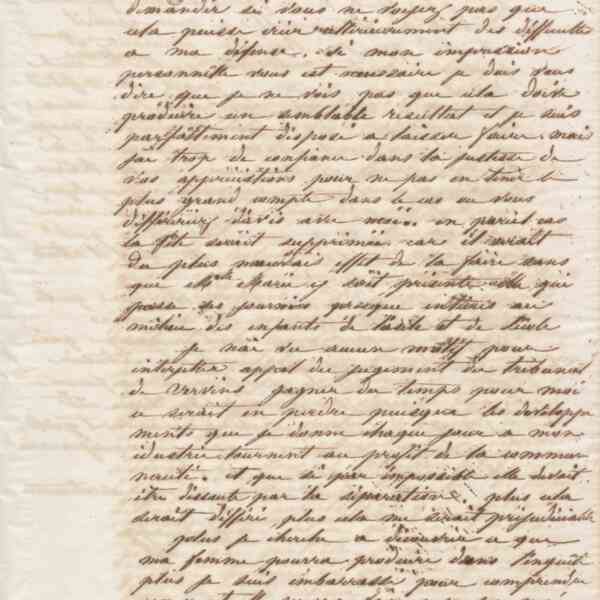 demander si vous ne voyez pas que
cela puisse créer ultérieurement des difficultés
a ma défense. si mon impression
personnelle vous est nécessaire je dois vous
dire que je ne vois pas que cela doive
produire un semblable résultat et je suis
parfaitement disposé a laisser faire. mais
j'ai trop de confiance dans la justesse de
vos appréciations pour ne pas en tenir le
plus grand compte dans le cas ou vous
différeriez d'avis avec moi. en pareil cas
la fête serait supprimée car il serait
du plus mauvais effet de la faire sans
que Melle Marie y soit présente elle qui
passe ses journées presque entières au
milieu des enfants de l'asile et de l'école
je n'ai vu aucun motif pour
interjeter appel du jugement du tribunal
de Vervins. gagner du temps pour moi
ce serait en perdre puisque les développe
ments que je donne chaque jour a mon
industrie tournent au profit de la commu
nauté. et que si par impossible elle devait
être dissoute par la séparation. plus cela
serait différé plus cela me serait préjudiciable
plus je cherche a découvrir ce que
ma femme pourra produire dans l'enquête
plus je suis embarrassé pour comprendre